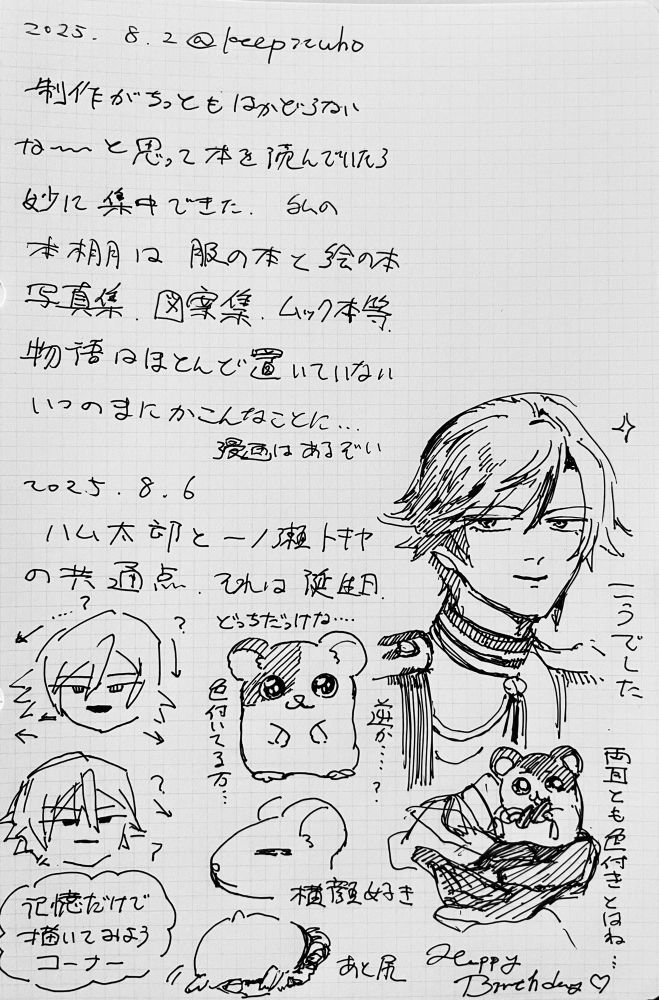 2025. 8. 2 @keepzuho
制作がちっともはかどらない
な〜〜と思って本を読んでいたら
妙に集中できた. 私の
本棚は 服の本と絵の本
写真集. 図案集. ムック本等.
物語はほとんど置いていない
いつのまにかこんなことに…
漫画はあるぞい
2025. 8. 6
ハム太郎と一ノ瀬トキヤ
の共通点. それは誕生日.
どっちだっけな…
色付いてる方…
逆か…?
…?
?
?
?
こうでした
両耳とも色付きとはね…
横顔好き
あと尻
記憶だけで
描いてみよう
コーナー
Happy
Birthday♡